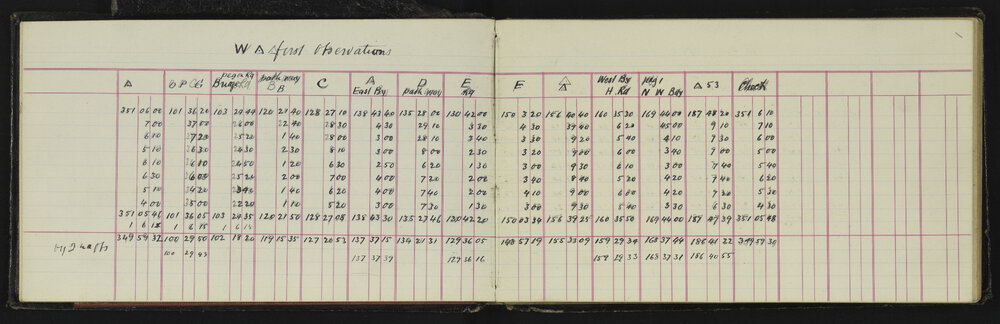 W △ first Observations
△ | B P CG | peg on Rd | path way B B | C | A East By | D path way | E | E | △ | West By H Rd | peg 1 N W Bdy | △ 53 | Check
351 06 00 | 101 36 20 | 103 24 44 | 120 21 40 | 128 27 10 | 138 43 40 | 135 28 00 | 130 42 00 | 150 3 20 | 156 40 40 | 160 35 30 | 169 44 00 | 187 48 20 | 351 6 10
7 00 | 37 00 | 26 00 | 22 40 | 28 30 | 4 30 | 29 10 | 3 30 | 4 30 | 39 40 | 6 20 | 45 00 | 9 10 | 7 10
6 10 | 37 20 | 25 20 | 1 40 | 8 00 | 3 00 | 28 10 | 3 40 | 3 30 | 9 20 | 5 40 | 4 10 | 7 30 | 6 00
5 10 | 26 30 | 24 30 | 2 30 | 8 10 | 3 20 | 8 00 | 2 30 | 3 00 | 8 20 | 3 40 | 3 40 | 7 00 | 5 00
6 10 | 24 50 | 1 20 | 6 30 | 2 50 | 6 20 | 1 30 | 3 00 | 9 30 | 6 10 | 3 00 | 7 40 | 5 40
6 30 | 36 00 | 25 20 | 2 00 | 7 00 | 4 00 | 7 20 | 2 00 | 3 40 | 8 40 | 5 20 | 4 20 | 7 40 | 6 20
5 10 | 34 20 | 1 40 | 6 20 | 4 00 | 7 40 | 2 00 | 4 10 | 9 00 | 6 00 | 4 20 | 7 20 | 5 30
4 00 | 35 00 | 22 20 | 1 10 | 5 20 | 3 00 | 7 30 | 1 30 | 3 00 | 9 30 | 5 40 | 3 30 | 6 30 | 4 30
351 05 46 | 101 36 05 | 103 24 35 | 120 21 50 | 128 27 08 | 138 43 30 | 135 27 46 | 130 42 20 | 150 03 34 | 156 39 25 | 160 35 50 | 169 44 00 | 187 47 39 | 351 05 48
1 6 15 | 1 6 15 | 1 6 15
349 59 32 | 100 29 50 | 102 18 20 | 119 15 35 | 127 20 53 | 137 37 15 | 134 21 31 | 129 36 05 | 148 57 19 | 155 33 09 | 159 29 34 | 168 37 44 | 186 41 22 | 349 59 30
100 29 43 | 137 37 37 | 129 36 16 | 159 29 33 | 168 37 31 | 186 40 55